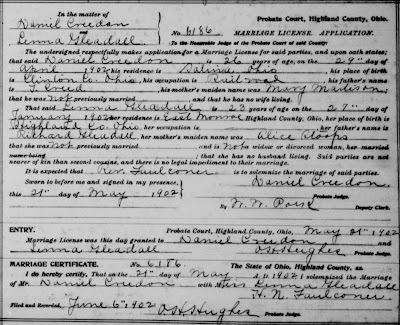 In the matter of
Daniel Creedon
and
Linna Gleadall
Probate Court, Highland County, Ohio.
No. 6186 MARRIAGE LICENSE APPLICATION.
To the Honorable Judge of the Probate Court of said County:
The undersigned respectfully makes application for a Marriage License for said parties, and upon oath states;
that said Daniel Creedon is 26 years of age on the 29" day of
April 1902 his residence is Ohio, his place of birth
is Clinton Co. Ohio, his occupation is Rail road his father's name
is T. Creed, his mother's maiden name was Mary Madison,
that he was not previously married, and that he has no wife living,
That said Linna Gleadall is 23 years of age on the 27" day of
January 1902 her residence is East Monroe, Highland County, Ohio, her place of birth is
Highland Co. Ohio, her occupation is her father's name
is Gleadall, her mother's maiden name was Alice
that she was not previously married, and is not a widow or divorced woman, her married
name being ; that she has no husband living. Said parties are not
nearer of kin than second cousins, and there is no legal impediment to their marriage.
It is expected that Rev. Faulconer is to solemnize the marriage of said parties.
Sworn to before me and signed in my presence, Daniel Creedon
this 21st day of May 1902 Probate Judge.
By W. W. Deputy Clerk.
ENTRY. Probate Court, Highland County, Ohio, May 21st 1902
Marriage License was this day granted to Daniel Creedon and
Linna Gleadall O.H. Hughes Probate Judge.
MARRIAGE CERTIFICATE. No. 6186 The State of Ohio, Highland County, ss.
I do hereby Certify, That on the 21st day of May A. D. 1902 I solemnized the Marriage
of Mr. Daniel Creedon with Miss Linna Gleadall
H. N. Faulconer
Filed and Recorded, June 6" 1902 O.H. Hughes
Probate Judge.